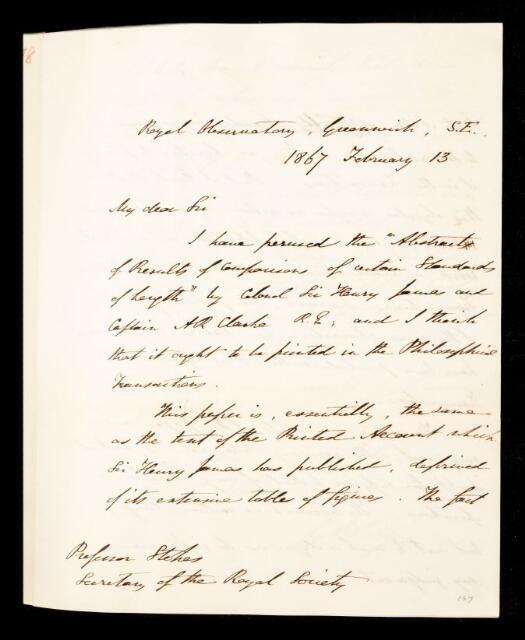 Royal Observatory, Greenwich, S.E.
1867 February 13
My dear Sir
I have perused the "Abstract
of Results of Comparisons of certain Standards
of Length" by Colonel Sir Henry James and
Captain A R Clarke R.E; and I think
that it ought to be printed in the Philosophical
Transactions.
This paper is, essentially, the same
as the text of the Printed Account which
Sir Henry James has published, deprived
of its extensive table of figures. The fact
Professor Stokes
Secretary of the Royal Society